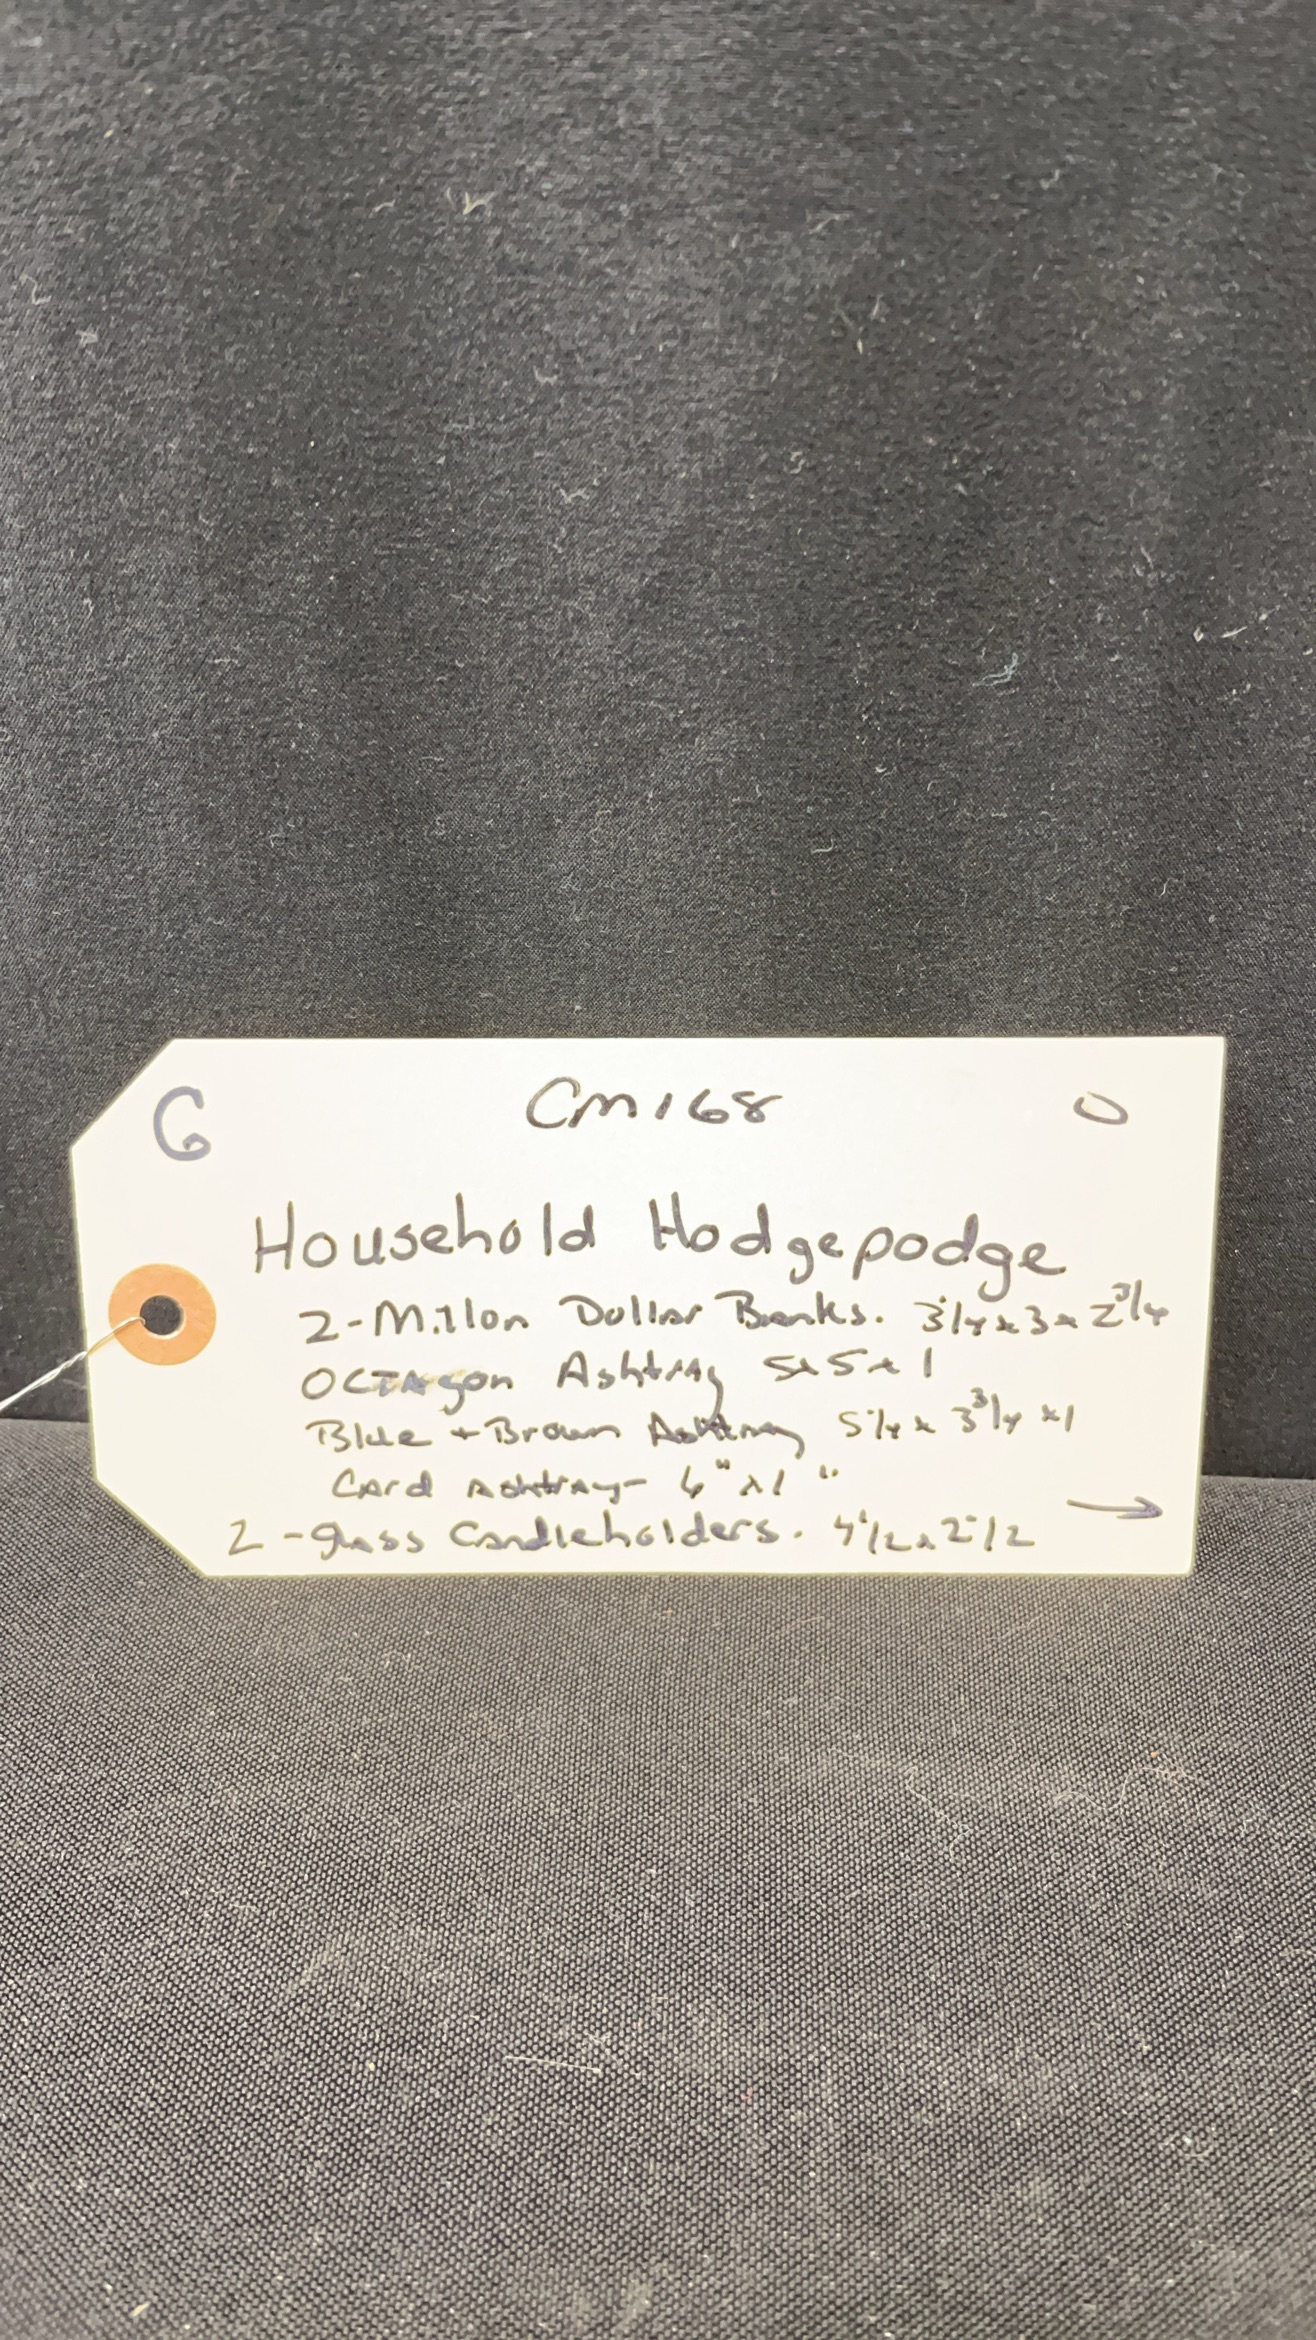 G CM168 O
Household Hodgepodge
2-Millon Dollar Banks. 3 1/4 x 3 x 2 3/4
OCTAgon Ashtray 5x5x1
Blue + Brown Ashtray 5 1/4 x 3 3/4 x1
Card Ashtray- 6" x1"
2 -glass Candleholders. 4 1/2 x 2 1/2 →